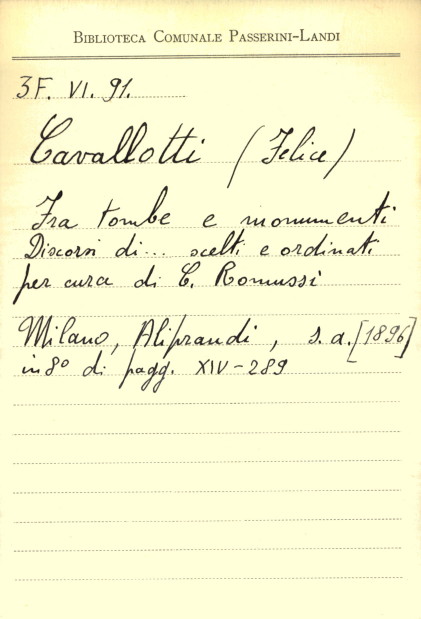 BIBLIOTECA COMUNALE PASSERINI-LANDI
3F. VI. 91.
Cavallotti (Felice)
Fra tombe e monumenti
Discorsi di... scelti e ordinati
per cura di C. Romussi
Milano, Aliprandi, s. a. [1896]
in 8º di pagg. XIV-289